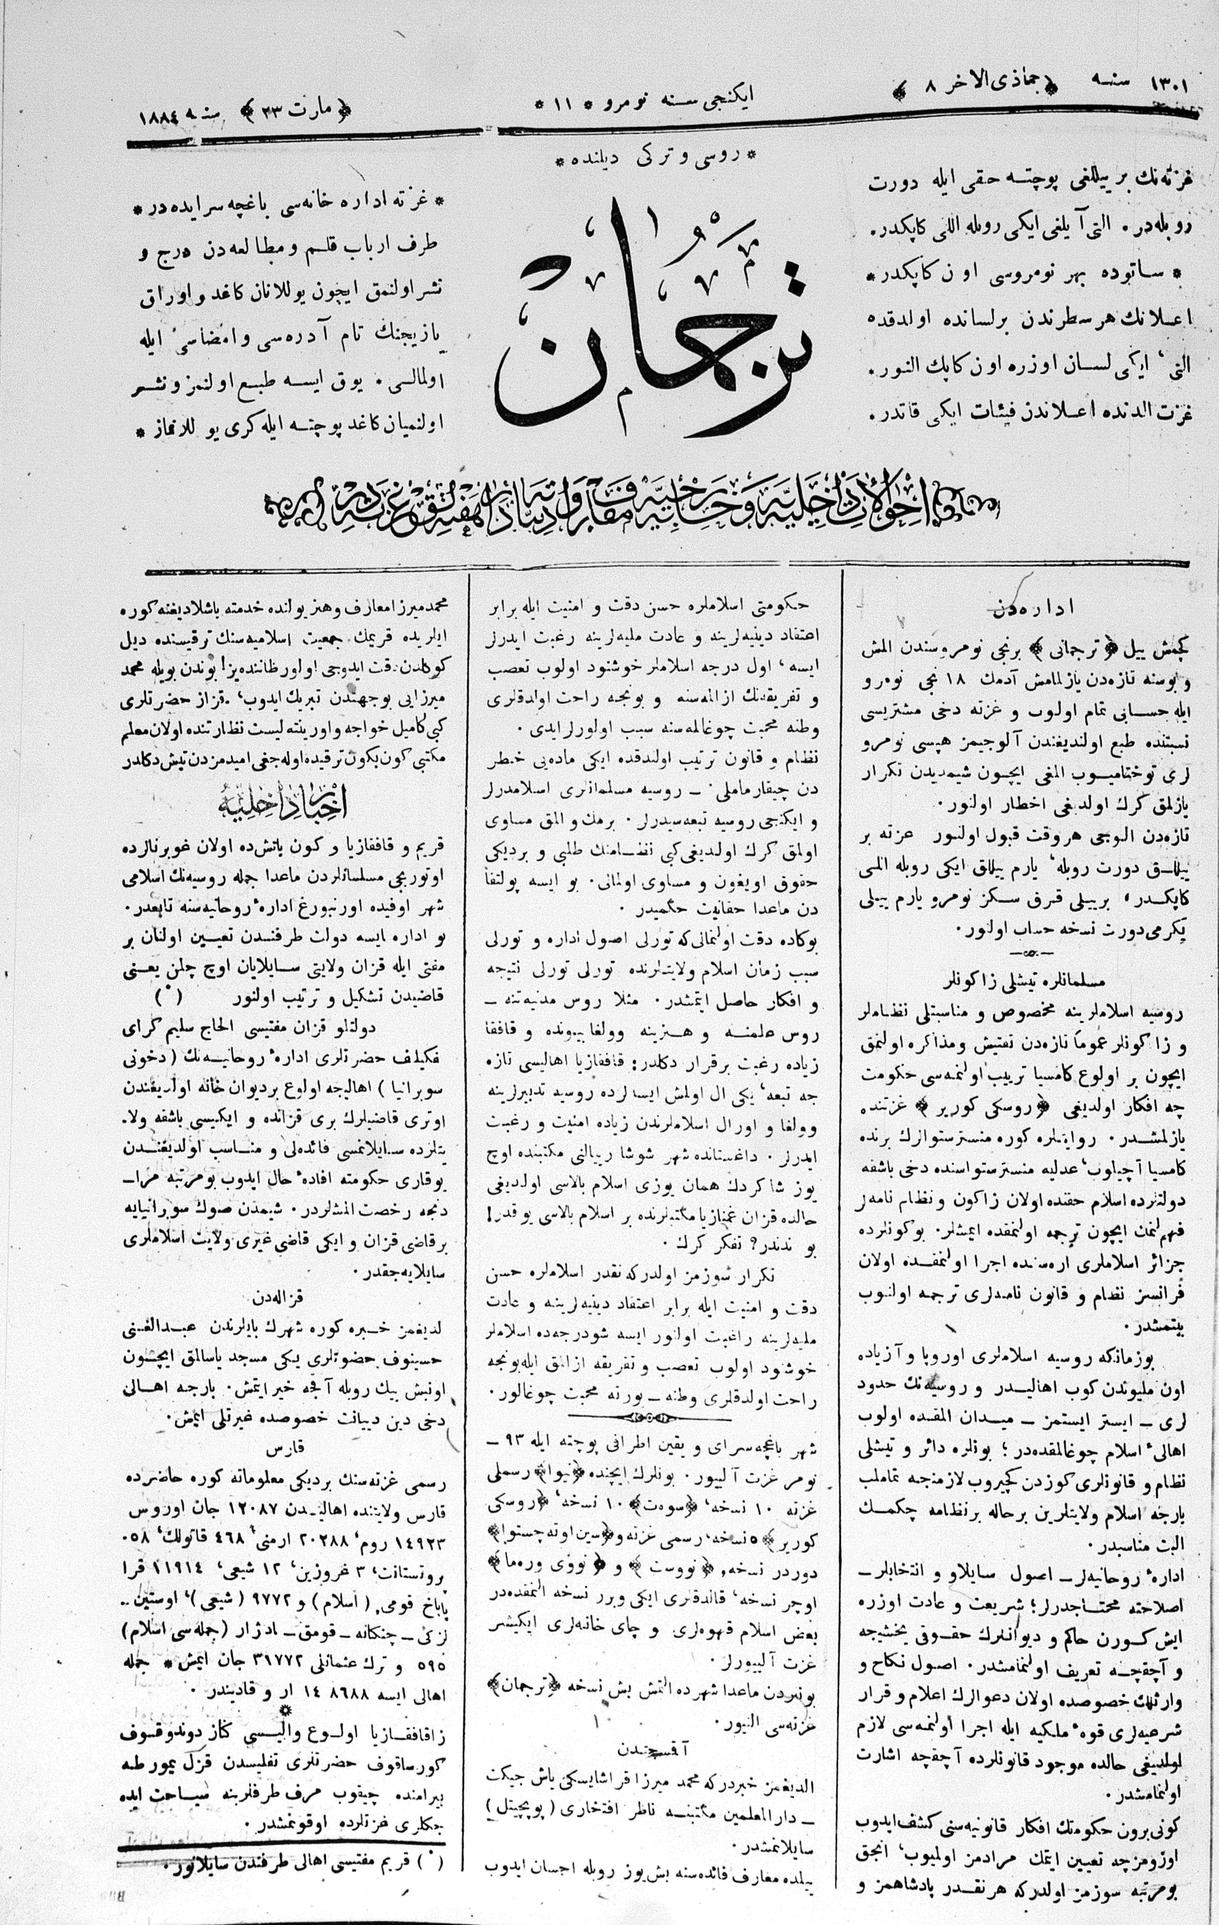 ١٣٠١ سنه ﴿ جماذى الاخر ٨ ﴾
ايكنجى سنه نومرو * ١١ *
﴿ مارت ٢٣ ﴾ سنه ١٨٨٤
* روسى و تركى ديلنده *
غزته‌نك بر ييللغى پوچته حقى ايله دورت
روبله‌در . التى آيلغى ايكى روبله اللى كاپكدر.
* ساتوده بهر نومروسى اون كاپكدر *
اعلانك هر سطرندن بر لسانده اولدقده
التى ، ايكى لسان اوزره اون كاپك النور.
غزت الدنده اعلاندن فيئات ايكى قاتدر.
ترجمان
* غزته اداره خانه‌سى باغچه سرايده‌در *
طرف ارباب قلم و مطالعه‌دن درج و
نشر اولنمق ايچون يوللانان كاغد و اوراق
يازيجنك تام آدره‌سى و امضاسى ايله
اولمالى . يوق ايسه طبع اولنمز و نشر
اولنميان كاغد پوچته ايله كرى يوللانماز *
اداره‌دن
كچمش ييل ﴿ ترجمانى ﴾ برنجى نومروسندن المش
و بوسنه تازه‌دن يازلمامش آدمك ١٨ نجى نومرو
ايله حسابى تمام اولوب و غزته دخى مشتريسى
نسبتنده طبع اولنديغندن آلوجيمز هپسى نومرو
لرى توختاميوب المغى ايچون شيمديدن تكرار
يازلمق كرك اولديغى اخطار اولنور.
تازه‌دن الوجى هر وقت قبول اولنور غزته بر
ييللق دورت روبله، يارم ييللق ايكى روبله اللى
كاپكدر، بر ييلى قرق سكز نومرو يارم ييلى
يكرمى دورت نسخه حساب اولنور.
مسلمانلره تيشلى زاكونلر
روسيه اسلاملرينه مخصوص و مناسبتلى نظاملر
و زاكونلر عموماً تازه‌دن تفتيش و مذاكره اولنمق
ايچون بر اولوغ كامسيا ترتيب اولنمه‌سى حكومت
چه افكار اولديغى ﴿ روسكى كورير ﴾ غزتنده
يازلمشدر. روايتلره كوره منسترستوالرك برنده
كامسيا آچيلوب، عدليه منسترستواسنده دخى باشقه
دولتلرده اسلام حقنده اولان زاكون و نظام نامه‌لر
فهم‌لنمك ايچون ترجمه اولنمقده ايمشلر. بو كونلرده
جزائر اسلاملرى اره‌سنده اجرا اولنمقده اولان
فرانسز نظام و قانون نامه‌لرى ترجمه اولنوب
بيتمشدر.
بو زمانكه روسيه اسلاملرى اوروپا و آزياده
اون مليوندن كوب اهاليدر و روسيه‌نك حدود
لرى ــ ايستر ايستمز ــ ميدان المقده اولوب
اهالئ اسلام چوغالمقده‌در ؛ بونلره دائر و تيشلى
نظام و قانونلرى كوزدن كچيروب لازمنجه تماملب
بارجه اسلام ولايتلرين بر حاله بر نظامه چكمك
البت مناسبدر.
اداره روحانيه‌لر ــ اصول سايلاو و انتخابلر ــ
اصلاحته محتاجدرلر؛ شريعت و عادت اوزره
ايش كورن حاكم و ديوانلرك حقوقى يخشيجه
و آچقچه تعريف اولنمامشدر. اصول نكاح و
وارثلك خصوصده اولان دعوالرك اعلام و قرار
شرعيه‌لرى قوه ملكيه ايله اجرا اولنمه‌سى لازم
اولديغى حالده موجود قانونلرده آچقچه اشارت
اولنمامشدر.
كونى برون حكومتك افكار قانونيه‌سنى كشف ايدوب
اوزومزچه تعيين ايتمك مرادمز اولميوب، انجق
بو مرتبه سوزمز اولدركه هر نقدر پادشاهمز و
حكومتى اسلاملره حسن دقت و امنيت ايله برابر
اعتقاد دينيه‌لرينه و عادت مليه‌لرينه رغبت ايدرلر
ايسه ، اول درجه اسلاملر خوشنود اولوب تعصب
و تفريقه‌نك ازالمه‌سنه و بونجه راحت اولدقلرى
وطنه محبت چوغالمه‌سنه سبب اولورلر ايدى .
نظام و قانون ترتيب اولندقده ايكى ماده‌يى خطر
دن چيقارماملى . ــ روسيه مسلمانلرى اسلامدرلر
و ايكنجى روسيه تبعه‌سيدرلر . برمك و المق مساوى
اولمق كرك اولديغى كبى نظامنك طلبى و برديكى
حقوق اويغون و مساوى اولمالى. بو ايسه پولتقا
دن ماعدا حقانيت حكميدر .
بوكاده دقت اولنمالى كه تورلى اصول اداره و تورلى
سبب زمان اسلام ولايتلرنده تورلى تورلى نتيجه
و افكار حاصل ايتمشدر. مثلا روس مدنيه‌تنه ــ
روس علمنه و هنرينه وولغا بيونده و قافقا
زياده رغبت برقرار دكلدر: قافقازيا اهاليسى تازه
جه تبعه، يكى ال اولمش ايسه‌لرده روسيه تدبيرلرينه
وولغا و اورال اسلاملرندن زياده امنيت و رغبت
ايدرلر . داغستانده شهر شوشا ريالنى مكتبنده اوچ
يوز شاكردك همان يوزى اسلام بالاسى اولديغى
حالده قزان غمنازيا مكتبلرنده بر اسلام بالاسى يوقدر!
بو ندندر؟ تفكر كرك .
تكرار سوزمز اولدركه نقدر اسلاملره حسن
دقت و امنيت ايله برابر اعتقاد دينيه‌لرينه و عادت
مليه‌لرينه راغبت اولنور ايسه شودرجه‌ده اسلاملر
خوشنود اولوب تعصب و تفريقه ازالمق ايله بونجه
راحت اولدقلرى وطنه ــ يورته محبت چوغالور.
شهر باغچه‌سراى و يقين اطرافى پوچته ايله ٩٣ ــ
نومر غزت آليور. بونلرك ايچنده ﴿نيوا﴾ رسملى
غزته ١٠ نسخه، ﴿سوه‌ت﴾ ١٠ نسخه، ﴿روسكى
كورير﴾ ٥ نسخه، رسمى غزته و ﴿سين اوته‌چستوا﴾
دوردر نسخه, ﴿نووست﴾ و ﴿نووى وره‌ما﴾
اوچر نسخه، قالدقلرى ايكى و برر نسخه المقده‌در
بعض اسلام قهوه‌لرى و چاى خانه‌لرى ايكيشر
غزت آليورلر .
بونلردن ماعدا شهرده التمش بش نسخه ﴿ترجمان﴾
غزته‌سى النيور .
آقمسجددن
الديغمز خبردركه محمد ميرزا قراشايسكى ياش جيكت
ــ دار المعلمين مكتبنه ناظر افتخارى (پوپچيتل)
سايلانمشدر.
ييلده معارف فائده‌سنه بش يوز روبله احسان ايدوب
محمد ميرزا معارف و هنر يولنده خدمته باشلاديغنه كوره
ايلريده قريمك جمعيت اسلاميه‌سنك ترقيسنده ديل
كوكلدن دقت ايدوجى اولور ظاننده‌يز! بوندن بويله محمد
ميرزايى بو جهتدن تبريك ايدوب، قزاز حضرتلرى
كبى كاميل خواجه و اورينته ليست نظارتنده اولان معلم
مكتبى كون بكون ترقيده اوله جغى اميدمزدن تيش دكلدر
اخبار داخليه
قريم و قافقازيا و كون باتش‌ده اولان غوبرنالرده
اوتوريجى مسلمانلردن ماعدا جمله روسيه‌نك اسلامى
شهر اوفيده اورنبورغ اداره روحانيه‌سنه تابعدر.
بو اداره ايسه دولت طرفندن تعيين اولنان بر
مفتى ايله قزان ولايتى سايلايان اوچ چلن يعنى
قاضيدن تشكيل و ترتيب اولنور (*)
دولتلو قزان مفتيسى الحاج سليم كراى
فكيلف حضرتلرى اداره روحانيه‌نك (دخونى
سوبرانيا) اهاليجه اولوغ بر ديوان خانه اولديغندن
اوترى قاضيلرك برى قزانده و ايكيسى باشقه ولا.
يتلرده سايلانمسى فائده‌لى و مناسب اولديغندن
يوقارى حكومته افاده حال ايدوب بو مرتبه مرا ــ
دنجه رخصت المشلردر. شيمدن صوك سوبرانيايه
بر قاضى قزان و ايكى قاضى غيرى ولايت اسلاملرى
سايلايه‌جقدر.
قزاله‌دن
الديغمز خبره كوره شهرك بايلرندن عبد الغنى
حسينوف حضرتلرى يكى مسجد ياسالمق ايچون
اونبش بيك روبله آقچه خير ايتمش. بارجه اهالى
دخى دين ديانت خصوصده غيرتلى ايمش.
قارس
رسمى غزته‌سنك برديكى معلوماته كوره حاضرده
قارس ولايتنده اهاليدن ١٢٠٨٧ جان اوروس
١٤٩٢٣ روم، ٢٠٢٨٨ ارمنى، ٤٦٨ قاتولك، ٠٥٨
پروتستانت، ٣ غروزين، ١٢ شيعى، ١١٩١٤ قرا
پاپاخ قومى, (اسلام) و ٩٧٧٢ (شيعى)، اوستين ــ
لزكى ــ چنكانه ــ قومق ــ ادژار (جمله‌سى اسلام)
٥٩٥ و ترك عثمانلى ٣٩٧٧٢ جان ايمش * جمله
اهالى ايسه ١٤٨٦٨٨ ار و قاديندر .
*
زاقافقازيا اولوغ واليسى كناز دوندوقوف
كورساقوف حضرتلرى تفليسدن قزل يمورطه
بيرامنده چيقوب مرف طرفلرينه سياحت ايده
جكلرى غزتلرده اوقونمشدر.
(*) قريم مفتيسى اهالى طرفندن سايلانور.